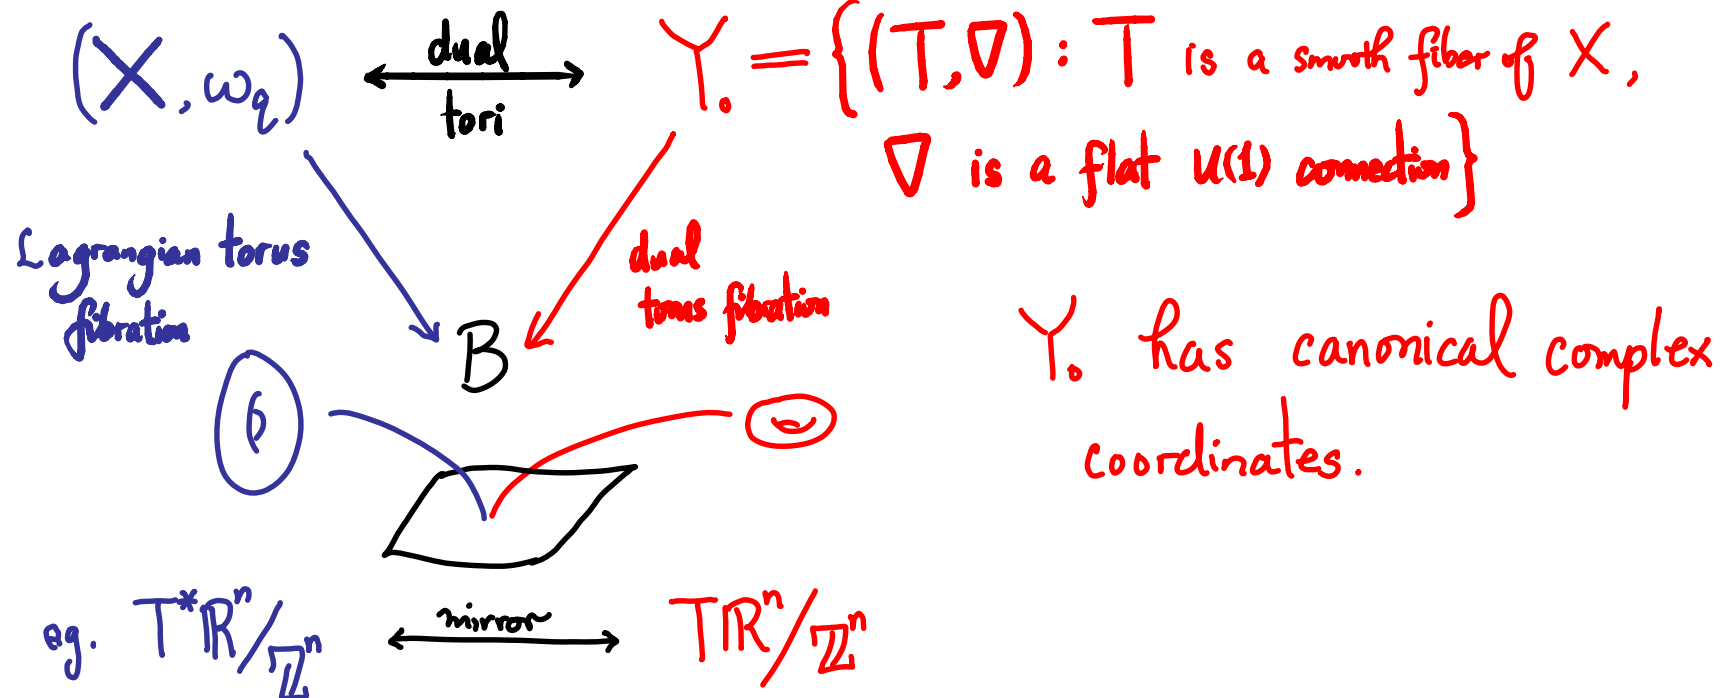 (X, ω_q) dual tori Y₀ = {(T, ∇) : T is a smooth fiber of X,
∇ is a flat U(1) connection}
Lagrangian torus
fibration
dual
torus fibration
B
Y₀ has canonical complex
coordinates.
eg. T*ℝⁿ/ℤⁿ mirror Tℝⁿ/ℤⁿ